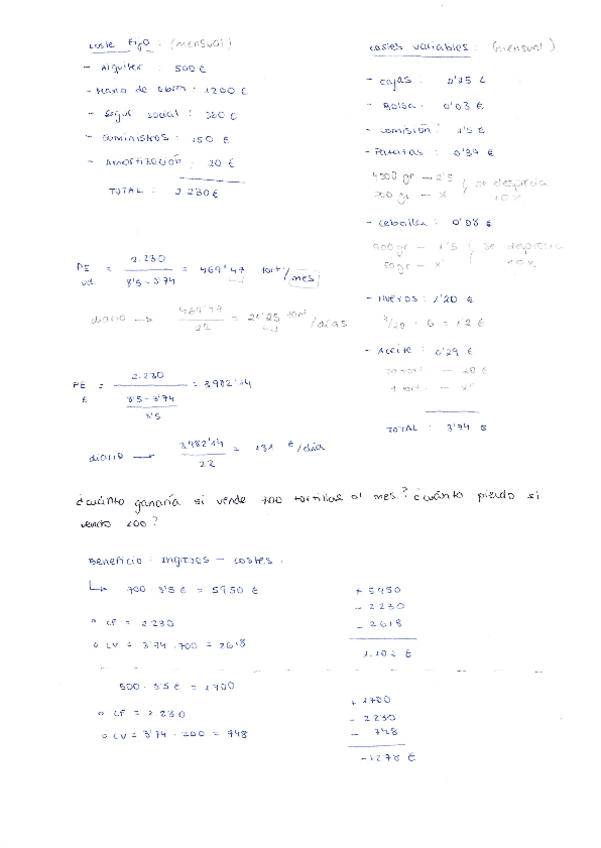 coste Fijo: (mensual)
- Alquiler: 500 €
- Mano de obra: 1200 €
- Segur social: 320 €
- suministros: 150 €
- Amortización: 20 €
TOTAL: 2.230 €
costes variables: (mensual)
- cajas: 0'15 €
- Bolsa: 0'03 €
- comisión: 1'5 €
- Patatas: 0'39
gr — 2'5
gr — x
se desprecia
10%
- cebolla: 0'08 €
900 gr — 1'5
50 gr — x
se desprecia
10%
- Huevos: 1'20 €
/20 · 6 = 1'2 €
- Aceite: 0'29 €
— 20 €
1 tort — x
TOTAL: 3'74 €
PE ud. = 2.230 / 8'5 - 3'74 = 469'47 tort/mes
diario → 469'47 / 22 = 21'25 tort/días
PE € = 2.230 / 8'5 - 3'74 / 8'5 = 3982'14
diario → 3982'14 / 22 = 181 €/día
¿cuánto ganaría si vende 700 tortillas al mes? ¿cuánto pierdo si
vendo 200?
Beneficio: Ingresos - costes.
700 · 8'5 € = 5950 €
CF = 2.230
CV = 3'74 · 700 = 2618
+ 5950
- 2230
- 2618
1.102 €
8'5 € = 1700
CF = 2.230
CV = 3'74 · 200 = 748
+ 1700
- 2230
- 748
-1278 €